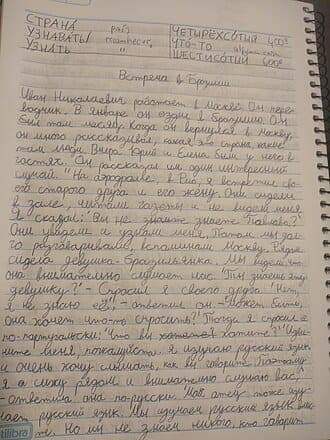 СТРАНА país ЧЕТЫРЁХСОТЫЙ 400º
УЗНАВАТЬ ЧТО-ТО
УЗНАТЬ " ШЕСТИСОТЫЙ 600º
Встреча в Бразилии
Иван Николаевич работает в Москве. Он пере-
водчик. В январе он ездил в Бразилию. Он
был там месяц. Когда он вернулся в Москву,
он много рассказывал, какая это страна, какие
там люди. Вчера Юрий и Елена были у него в
гостях. Он рассказал им один интересный
случай. "На аэродроме, в Рио, я встретил сво-
его старого друга и его жену. Они сидели
в зале, читали газеты и не видели меня
Я сказал: Вы не знаете Павлова?"
Они увидели и узнали меня. Потом мы дол-
го разговаривали, вспоминали Москву. Рядом
сидела девушка-бразильянка. Мы видели, что
она внимательно слушает нас. "Ты знаешь эту
девушку?" - Спросил я своего друга. "Нет,
я не знаю её", - ответил он. - Может быть,
она хочет что-то спросить?" Тогда я спросил её
по-португальски: "Что вы хотите?" "Изви-
ните меня, пожалуйста. Я изучаю русский язык
и очень хочу слышать, как вы говорите. Поэтому
я сижу рядом и внимательно слушаю вас."
- Ответила она по-русски. Мой отец тоже изу-
чает русский язык. Мы изучаем русский язык вмес-
те. Но мы не знаем никого, кто говорит
tilibra